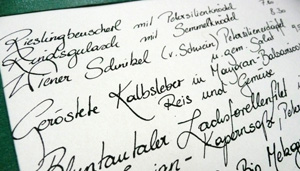 Rieslingbeuscherl mit Petersilienknödel
Rindsgulasch mit Semmelknödel
Wiener Schnitzel (v. Schwein) Petersilienerdäpfel
u. gem. Salat
Geröstete Kalbsleber in Majoran-Balsamico
Reis und Gemüse
Bluntautaler Lachsforellenfilet
Kapernsoße,
Bio